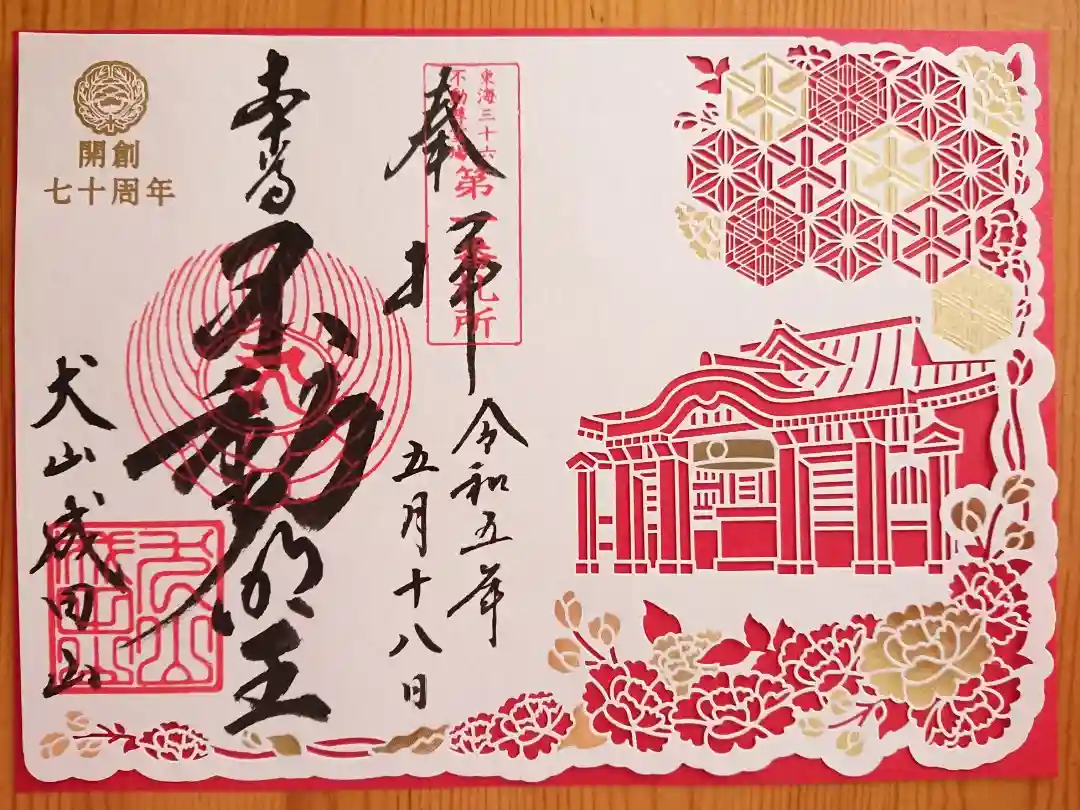 東海三十六
不動尊霊場
第一番札所
奉拝
令和五年
五月十八日
本尊
不動明王
犬山成田山
開創
七十周年